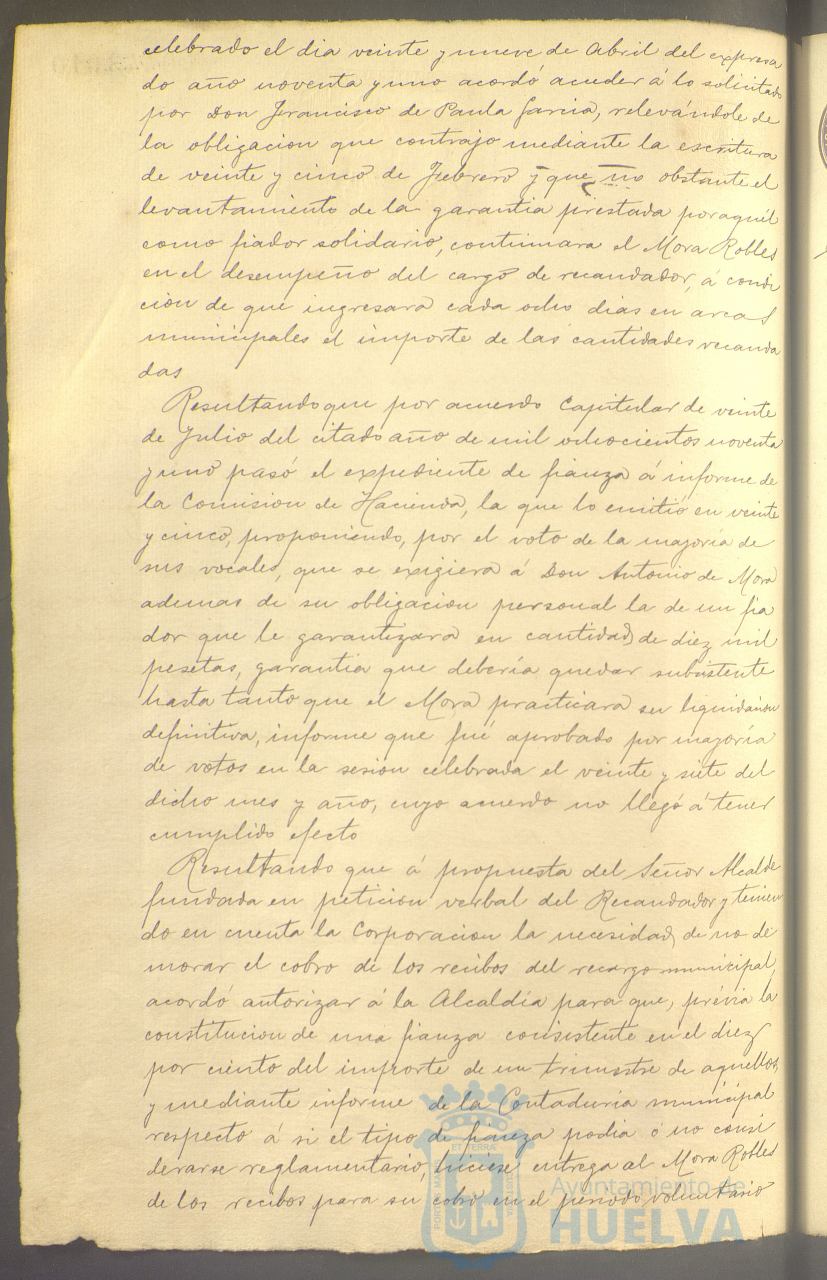 celebrado el dia veinte y nueve de Abril del expresa
do año noventa y uno acordó acceder á lo solicitado
por Don Francisco de Paula Garcia, relevándole de
la obligacion que contrajo mediante la escritura
de veinte y cinco de Febrero y que no obstante el
levantamiento de la garantia prestada por aquél
como fiador solidario, continuara el Mora Robles
en el desempeño del cargo de recaudador, á condi
cion de que ingresara cada ocho dias en arcas
municipales el importe de las cantidades recauda
das
Resultando que por acuerdo Capitular de veinte
de Julio del citado año de mil ochocientos noventa
y uno pasó el expediente de fianza á informe de
la Comision de Hacienda, la que lo emitió en veinte
y cinco, proponiendo, por el voto de la mayoria de
sus vocales, que se exigiera á Don Antonio de Mora
ademas de su obligacion personal la de un fia
dor que le garantizara en cantidad de diez mil
pesetas, garantia que debería quedar subsistente
hasta tanto que el Mora practicara su liquidacion
definitiva, informe que fué aprobado por mayoría
de votos en la sesion celebrada el veinte y siete del
dicho mes y año, cuyo acuerdo no llegó á tener
cumplido efecto
Resultando que á propuesta del Señor Alcalde
fundada en peticion verbal del Recaudador y tenien
do en cuenta la Corporacion la necesidad de no de
morar el cobro de los recibos del recargo municipal,
acordó autorizar á la Alcaldía para que, prévia la
constitucion de una fianza consistente en el diez
por ciento del importe de un trimestre de aquellos,
y mediante informe de la Contaduria municipal
respecto á si el tipo de fianza podia ó no consi
derarse reglamentario, hiciese entrega al Mora Robles
de los recibos para su cobro en el periodo voluntario
Ayuntamiento de
HUELVA